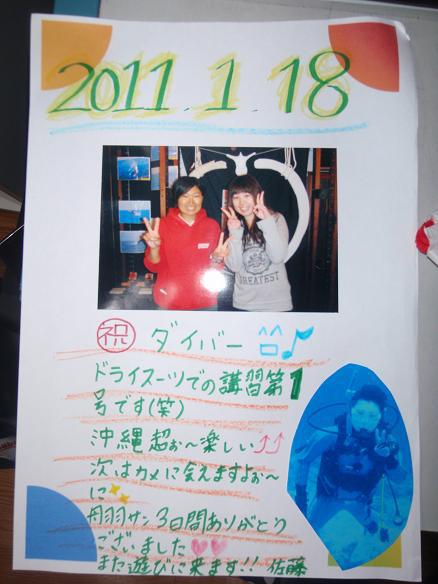 2011.1.18
GREATEST
祝 ダイバー
ドライスーツでの講習第1
号です(笑)
沖縄超ぉ〜楽しい⤴⤴
次はカメに会えますよぉ〜
に
丹羽サン3日間ありがとう
ございました
また遊びに来ます!! 佐藤